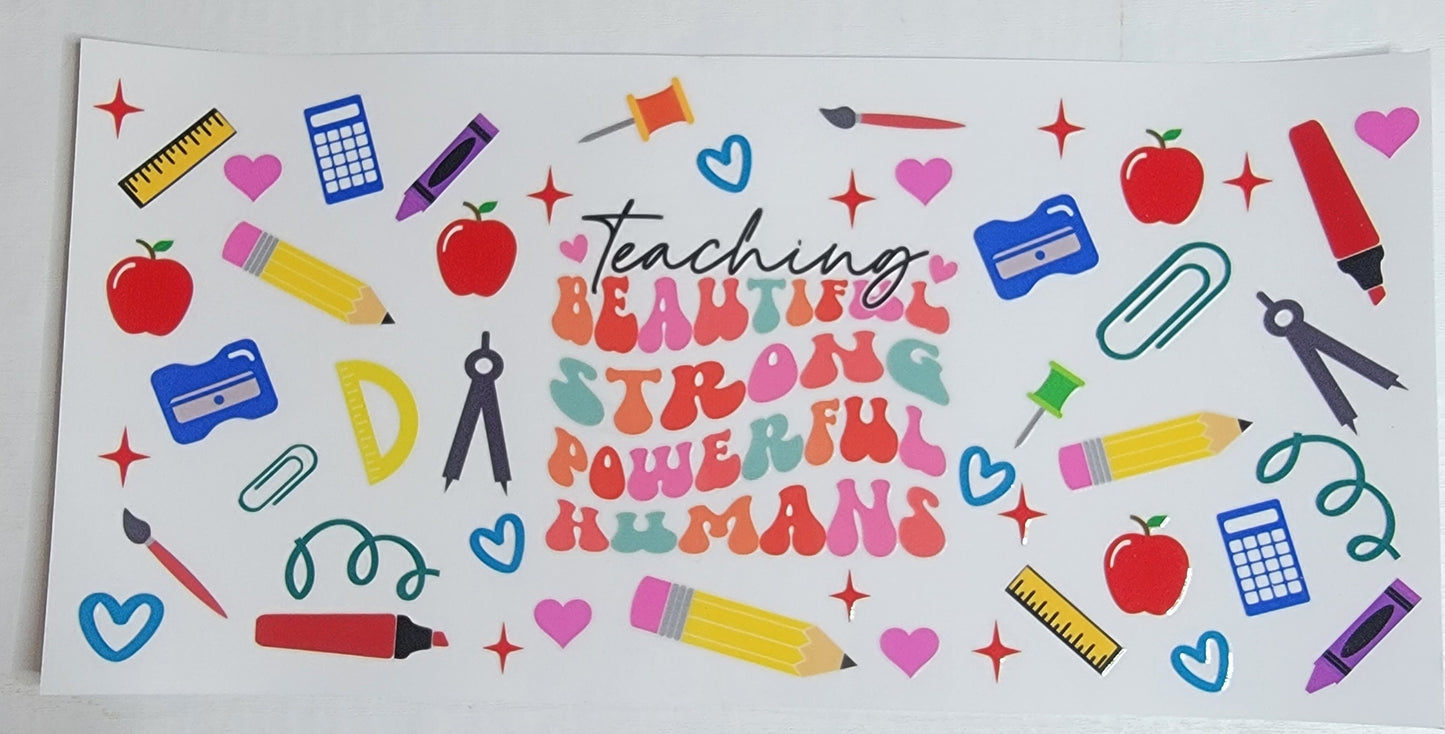 Teaching
BEAUTIFUL
STRONG
POWERFUL
HUMANS